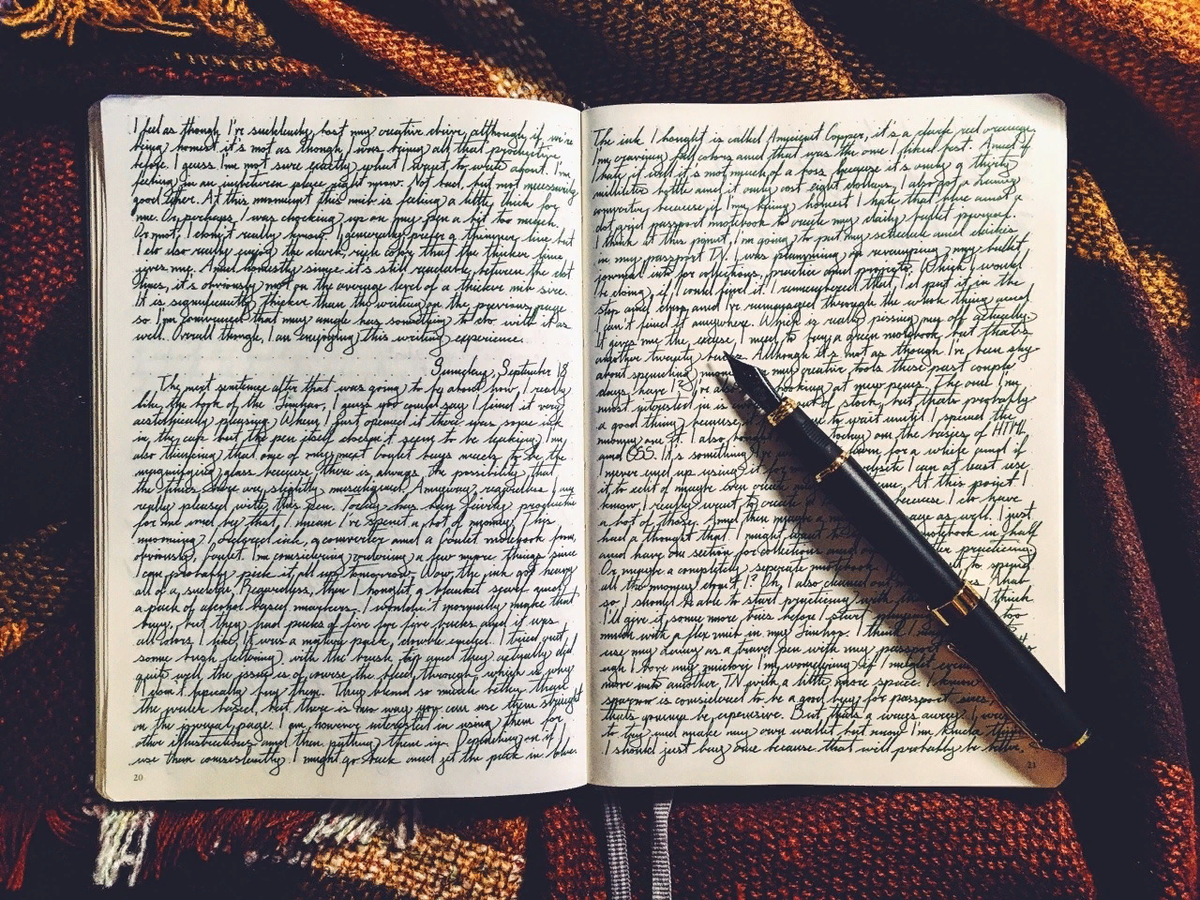 I feel as though I've suddenly lost my creative drive, although if we're
being honest it's not as though I was being all that productive
before. I guess I'm not sure exactly what I want to write about. I'm
feeling in an inbetween place right now. Not bad, but not necessarily
good either. At this moment this nib is feeling a little thick for
me. Or perhaps I was choking up on my pen a bit too much.
Or not. I don't really know. I generally prefer a thinner line but
I do also really enjoy the dark, rich color that the thicker line
gives me. And honestly since it's still readable between the dot
lines, it's obviously not on the average level of a thicker nib size.
It is significantly thicker than the writing on the previous page
so I'm convinced that my angle has something to do with it as
well. Overall though, I am enjoying this writing experience.
Sunday, September 18
The next sentence after that was going to be about how I really
like the look of the Jinhao, I guess you could say I find it very
aesthetically pleasing. When I just opened it there was some ink
in the cap but the pen itself doesn't seem to be leaking. I'm
also thinking that one of my next Goulet buys needs to be the
magnifying glass because there is always the possibility that
the tines are slightly misaligned. Anyway, regardless I am
really pleased with this pen. Today has been fairly productive
for me and by that, I mean I've spent a lot of money. This
morning I ordered ink, a converter and a Goulet notebook from,
obviously, Goulet. I'm considering ordering a few more things since
I can probably pack it all up tomorrow. Wow, the ink got heavy
all of a sudden. Regardless, then I bought a blanket scarf and
a pack of alcohol based markers. I wouldn't normally make that
buy, but they had packs of five for five bucks and it was
all colors I like. It was a nature pack, double ended. I tried out
some rough lettering with the brush tip and they actually did
quite well, the issue is of course the bleed through, which is why
I don't typically buy them. They blend so much better than
the water based, but there is no way you can use them straight
on the journal page. I am however interested in using them for
other illustrations and then putting them in. Depending on if I
use them consistently I might go back and get the pack in blue.
20
The ink I bought is called Ancient Copper, it's a dark red orange.
I'm craving fall colors and that was the one I liked best. And if
I hate it well it's not much of a loss because it's only a thirty
milliliter bottle and it only cost eight dollars. I also got a
converter because if I'm being honest I hate that blue and a
dot grid passport notebook to create my daily bullet journal.
I think at this point, I'm going to put my schedule and dailies
in my passport TN. I was planning on revamping my bullet
journal into for collections, practice and projects. Which I would
be doing if I could find it. I remembered that I'd put it in the
and I've rummaged through the whole thing and
I can't find it anywhere. Which is really pissing me off actually.
It gives me the excuse I need to buy a green notebook, but that's
another twenty bucks. Although it's not as though I've been shy
about spending my creative tools these past couple
days have I? I've looking at new pens. The one I'm
most interested in is out of stock, but that's probably
a good thing because to wait until I spend the
money on it. I also bought today on the basics of HTML
and CSS. It's something for a while and if
I never end up using it I can at least use
it to or maybe even create At this point I
know I really want to create because I do have
a lot of those. And then maybe page as well. I just
had a thought that I might want notebook in half
and have one section for collections and practicing
Or maybe a completely separate notebook. to spend
all the money! don't I? Oh, I also cleaned out That
so I should be able to start practicing with think
I'll give it some more tries before I start too
much with a flex nib in my Jinhao. I think I'm
use my as a travel pen with my passport
ugh I love my I'm wondering if I might
move into another TN with a little more space. I know
is considered to be a good buy for passport sizes,
that's gunnge be expensive. But that's I was
to try and make my own wallet but now I'm kinda
I should just buy one because that will probably be better.
21